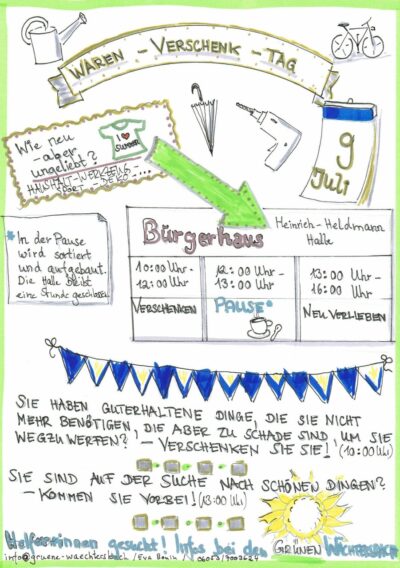 WAREN - VERSCHENK - TAG
9
Juli
Wie neu
- aber
ungeliebt?
I ♥
SUMMER
HAUSHALT - WERKZEUG
SPORT - DEKO...
Bürgerhaus
Heinrich-Heldmann
Halle
10:00 Uhr-
12:00 Uhr
VERSCHENKEN
12:00 Uhr-
13:00 Uhr
PAUSE*
13:00 Uhr -
16:00 Uhr
NEU VERLIEBEN
* In der Pause
wird sortiert
und aufgebaut.
Die Halle bleibt
eine Stunde geschlossen.
SIE HABEN GUTERHALTENE DINGE, DIE SIE NICHT
MEHR BENÖTIGEN, DIE ABER ZU SCHADE SIND, UM SIE
WEGZUWERFEN? - VERSCHENKEN SIE SIE! (10:00 Uhr)
SIE SIND AUF DER SUCHE NACH SCHÖNEN DINGEN?
- KOMMEN SIE VORBEI! (13:00 Uhr)
Helfer:innen gesucht! Infos bei den GRÜNEN WÄCHTERSBACH
info@gruene-waechtersbach / Eva Bönin